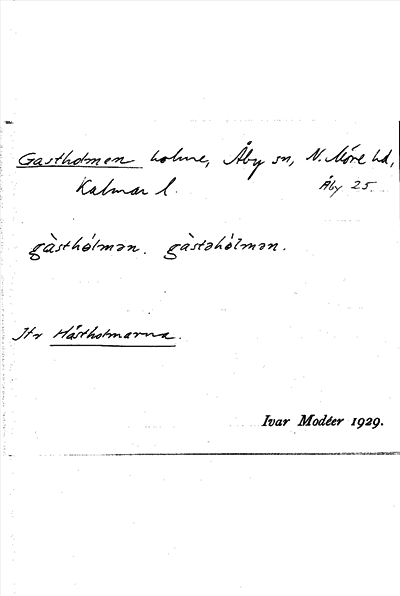 Gastholmen holme, Åby sn, N. Möre hd,
Kalmar l. Åby 25.
gàsthólmən. gàstəhólmən.
Jfr Hästholmarna.
Ivar Modéer 1929.